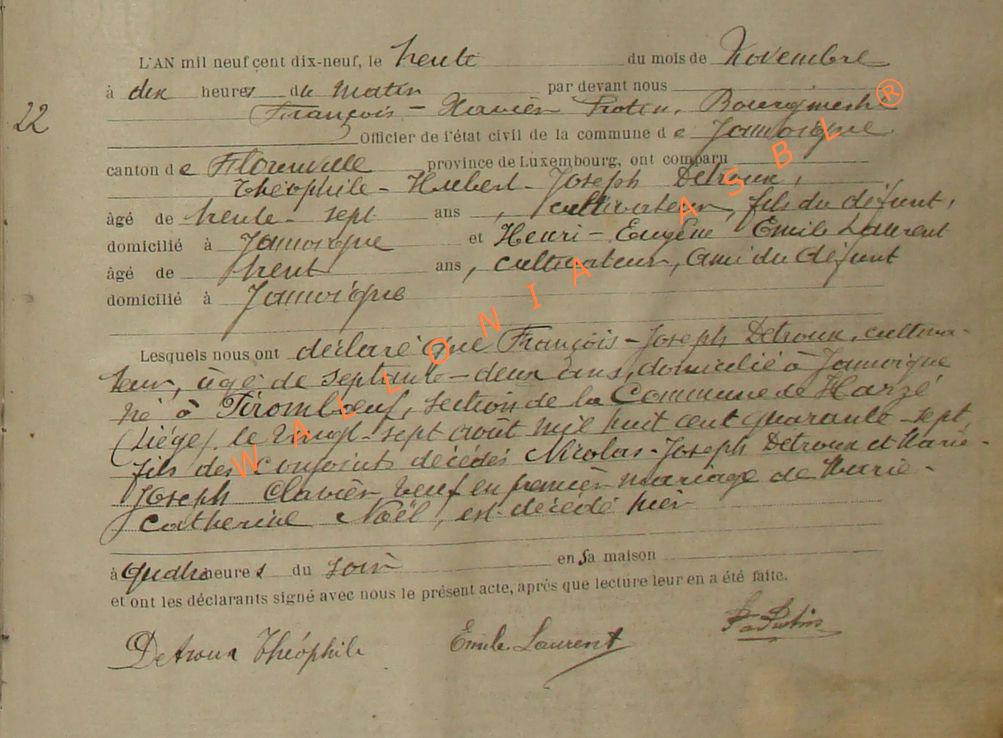 22
L'AN mil neuf cent dix-neuf, le trente du mois de Novembre
à dix heures du matin par devant nous
François - Xavier Bourgmestre
Officier de l'état civil de la commune de Jamoigne
canton de Florenville province de Luxembourg, ont comparu
Théophile - Hubert - Joseph Detroux,
âgé de trente - sept ans, cultivateur, fils du défunt,
domicilié à Jamoigne et Henri - Eugène Emile Laurent
âgé de trent ans, cultivateur, ami du défunt
domicilié à Jamoigne
Lesquels nous ont déclaré que François - Joseph Detroux, cultiva-
teur, âgé de septante - deux ans, domicilié à Jamoigne
né à Pironbœuf, section de la Commune de Harzé
(Liége) le vingt - sept août mil huit cent quarante - sept,
fils des conjoints décédés Nicolas - Joseph Detroux et Marie -
Joseph Clavier, veuf en premier mariage de Marie -
Catherine Noël, est décédé hier
à quatre heures du soir en sa maison
et ont les déclarants signé avec nous le présent acte, après que lecture leur en a été faite.
Detroux Théophile Emile Laurent
WALLONIA ASBL ®